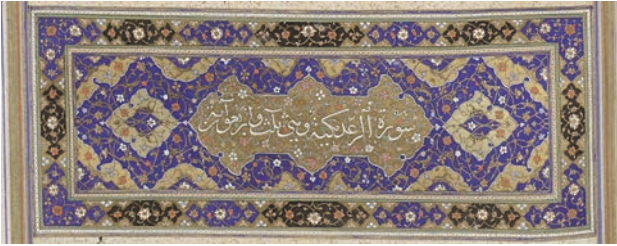 سورة الرعد مكية وهي ثلث واربعون آية